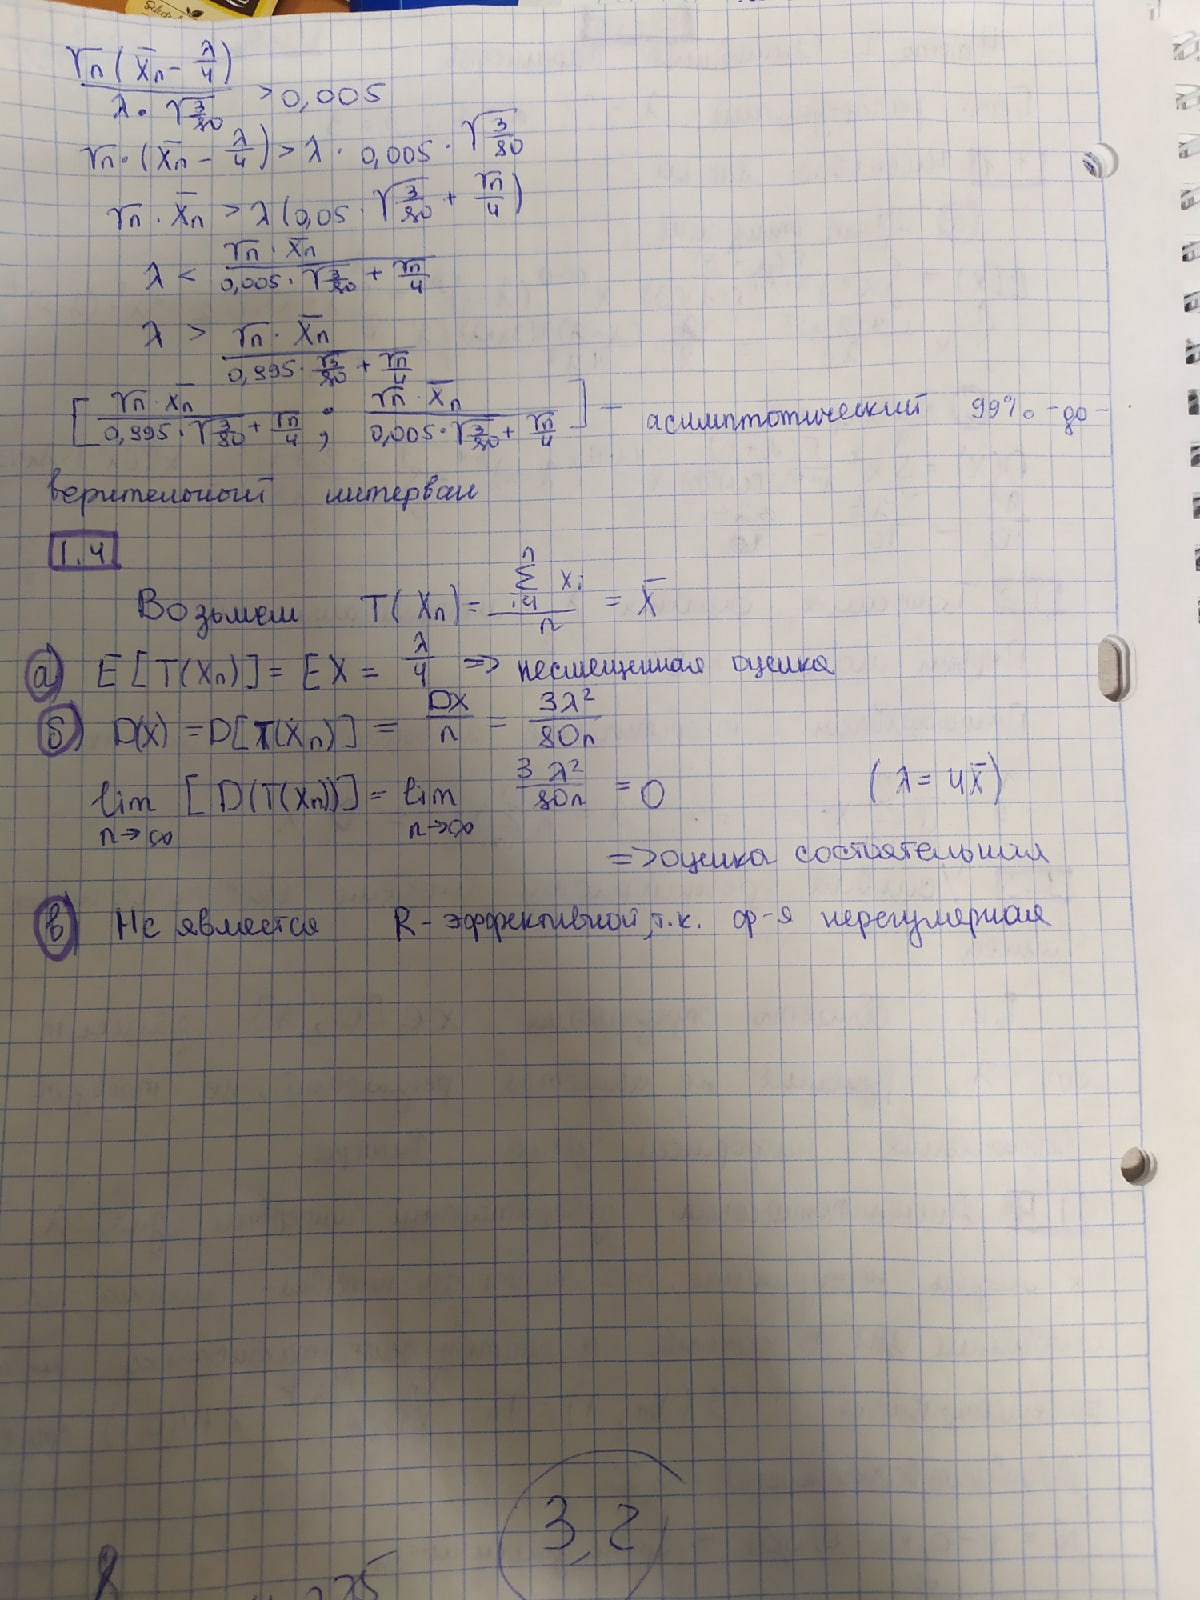 √n (X̄n - λ/4) / (λ · √(3/80)) > 0,005
√n · (X̄n - λ/4) > λ · 0,005 · √(3/80)
√n · X̄n > λ (0,05 · √(3/80) + √n/4)
λ < √n · X̄n / (0,005 · √(3/80) + √n/4)
λ > √n · X̄n / (0,995 · √3/80 + √n/4)
[ √n · X̄n / (0,995 · √(3/80) + √n/4) ; √n · X̄n / (0,005 · √(3/80) + √n/4) ] – асимптотический 99% - до-
верительный интервал
1.4
Возьмем T(Xn) = Σ Xi / n = X̄
а) E[T(Xn)] = EX = λ/4 => несмещенная оценка
б) D(X) = D[T(Xn)] = DX/n = 3λ²/80n
lim n→∞ [D(T(Xn))] = lim n→∞ 3λ²/80n = 0 (λ = 4X̄)
=> оценка состоятельная
в) Не является R-эффективной, т.к. ф-я нерегулярная
3,2